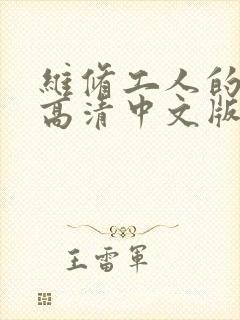 維脩工人的
高清中文版
王雷軍